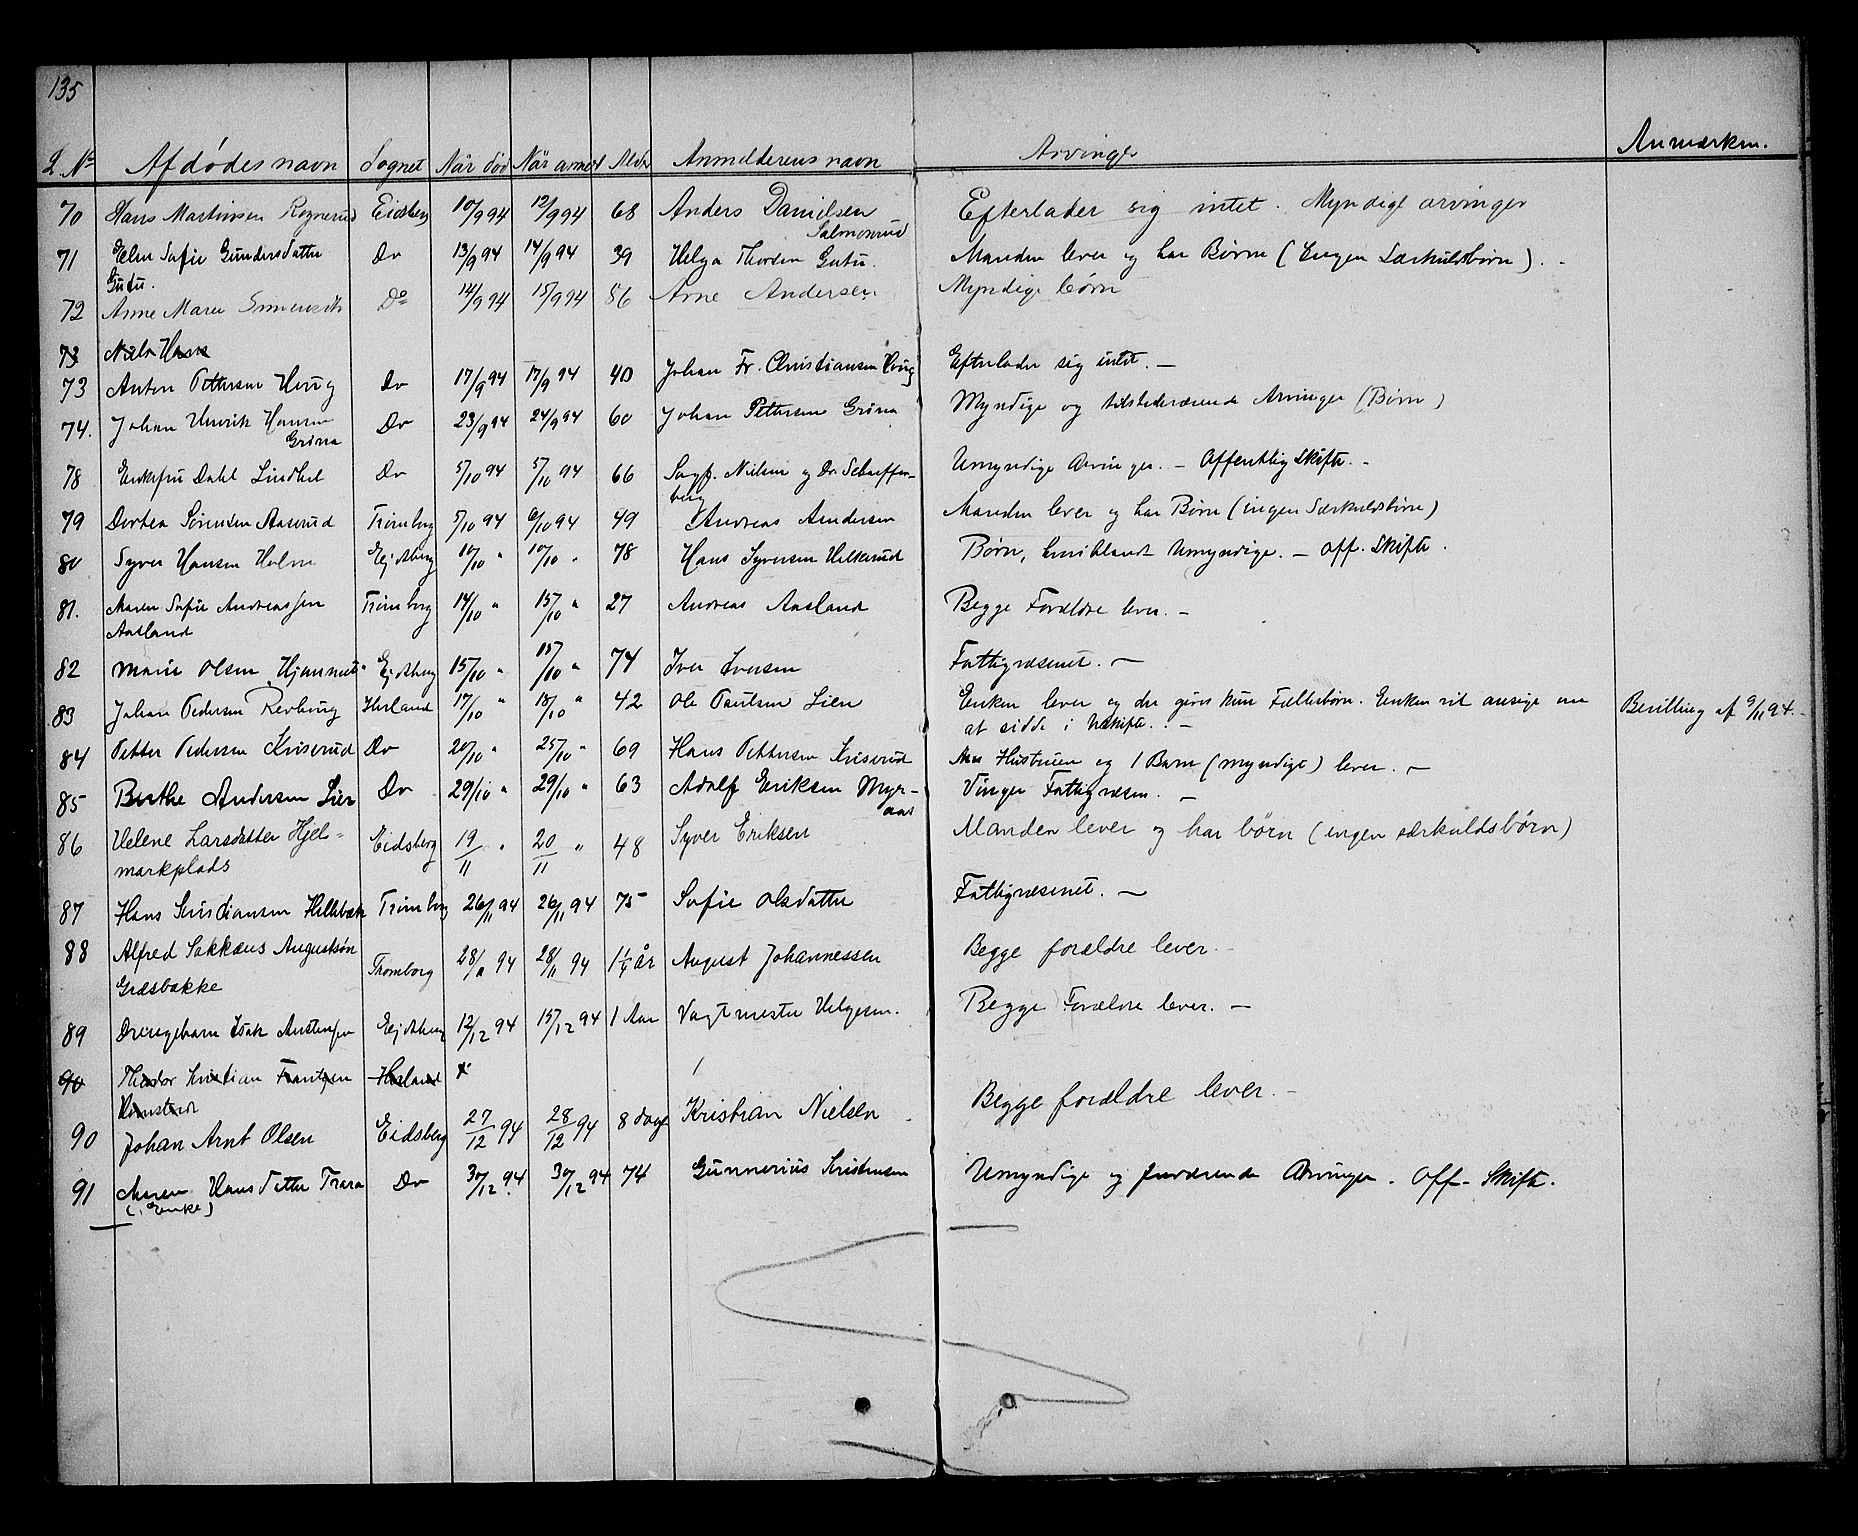 135
L. No Afdødes navn Sognet Når død Når anmel Alder Anmelderens navn Arvinger Anmærkn.
70 Hans Martinsen Rognerud Eidsberg 10/9 94 12/9 94 68 Anders Danielsen Efterlader sig intet. Myndige arvinger
Salmonrud
71 Elen Sofie Gundersdatter Do 13/9 94 14/9 94 39 Helga Thorsen Gutu. Manden lever og har Børn (Ingen Særkuldsbørn). -
Gutu.
72 Anne Maren Do 14/9 94 15/9 94 86 Arne Andersen Myndige børn
73 Niels Hans
73 Anton Pettersen Houg Do 17/9 94 17/9 94 40 Johan Fr. Christiansen Houg Efterlader sig intet. —
74. Johan Henrik Hansen Do 23/9 94 24/9 94 60 Johan Pettersen Grina Myndige og tilstedeværende Arvinger (Børn)
Grina
78 Enkefru Dahl Lindhol Do 5/10 94 5/10 94 66 Sagf. Nielsen og Dr. Scharffen- Umyndige Arvinger. - Offentlig Skifte. -
berg
79 Dorthea Sørensen Aaserud Trømborg 5/10 94 6/10 94 49 Andreas Andersen Manden lever og har Børn (ingen Særkuldsbørn)
80 Syver Hansen Holm Ejdsberg 10/10 " 10/10 " 78 Hans Syversen Helkerud Børn, hvoriblandt Umyndige. - Off. Skifte.
81. Maren Sofie Andreassen Trømborg 14/10 " 15/10 " 27 Andreas Aasland Begge Forældre lever. -
Aasland
82 Marie Olsen Ejdsberg 15/10 " 15/10 " 74 Iver Iversen Fattigvæsenet. —
83 Johan Pedersen Revhaug Herland 17/10 " 18/10 " 42 Ole Paulsen Lien Enken lever og der gives kun Fællesbørn. Enken vil ansøge om Bevilling af 9/11 94. -
at sidde i Uskifte. -
84 Petter Pedersen Kriserud Do 20/10 " 25/10 " 69 Hans Pettersen Kriserud Hustruen og 1 Barn (myndigt) lever. —
85 Berthe Andersen Lier Do 29/10 " 29/10 " 63 Adolf Eriksen Myr- Vinger Fattigvæsen. —
aas
86 Helene Larsdatter Hjel- Eidsberg 19/11 " 20/11 " 48 Syver Eriksen Manden lever og har børn (ingen særkuldsbørn)
markplads
87 Hans Kristiansen Hellebæk Trømborg 26/11 94 26/11 94 75 Sofie Olsdatter Fattigvæsenet. —
88 Alfred Sakkæus Augustsøn Trømborg 28/11 94 28/11 94 1 1/4 år August Johannessen Begge forældre lever. -
Græsbakke
89 Drengebarn Isak Austensen Ejdsberg 12/12 94 15/12 94 1 Aar Vagtmester Helgesen. Begge Forældre lever. —
90 Theodor Kristian Frantzen Herland
90 Johan Arnt Olsen Eidsberg 27/12 94 28/12 94 8 dage Kristian Nielsen Begge forældre lever. -
91 Maren Hansdatter Trara Do 30/12 94 30/12 94 74 Gunnerius Kristensen Umyndige og fraværende Arvinger. Off. Skifte.
(Enke)